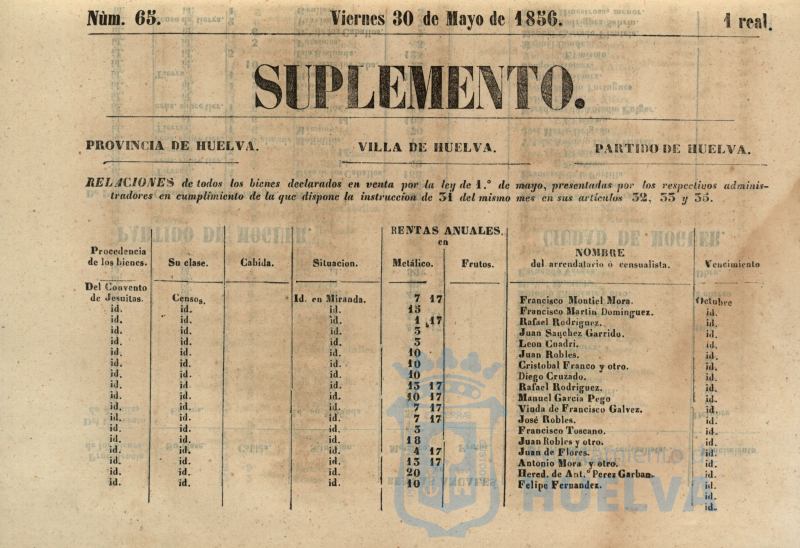 Núm. 65. Viernes 30 de Mayo de 1856. 1 real.
SUPLEMENTO.
PROVINCIA DE HUELVA. VILLA DE HUELVA. PARTIDO DE HUELVA.
RELACIONES de todos los bienes declarados en venta por la ley de 1.º de mayo, presentadas por los respectivos adminis-
tradores en cumplimiento de la que dispone la instruccion de 31 del mismo mes en sus artículos 32, 33 y 35.
RENTAS ANUALES.
en
Procedencia de los bienes. Su clase. Cabida. Situacion. Metálico. Frutos. NOMBRE del arrendatario ó censualista. Vencimiento
Del Convento
de Jesuitas. Censos. Id. en Miranda. 7 17 Francisco Montiel Mora. Octubre
id. id. id. 15 Francisco Martin Dominguez. id.
id. id. id. 1 17 Rafael Rodriguez. id.
id. id. id. 3 Juan Sanchez Garrido. id.
id. id. id. 3 Leon Cuadri. id.
id. id. id. 10 Juan Robles. id.
id. id. id. 10 Cristobal Franco y otro. id.
id. id. id. 10 Diego Cruzado. id.
id. id. id. 13 17 Rafael Rodriguez. id.
id. id. id. 10 17 Manuel Garcia Pego id.
id. id. id. 7 17 Viuda de Francisco Galvez. id.
id. id. id. 7 17 José Robles. id.
id. id. id. 3 Francisco Toscano. id.
id. id. id. 18 Juan Robles y otro. id.
id. id. id. 4 17 Juan de Flores. id.
id. id. id. 13 17 Antonio Mora y otro. id.
id. id. id. 20 Hered. de Ant.º Perez Garban. id.
id. id. id. 10 Felipe Fernandez. id.
id.
id.
HUELVA